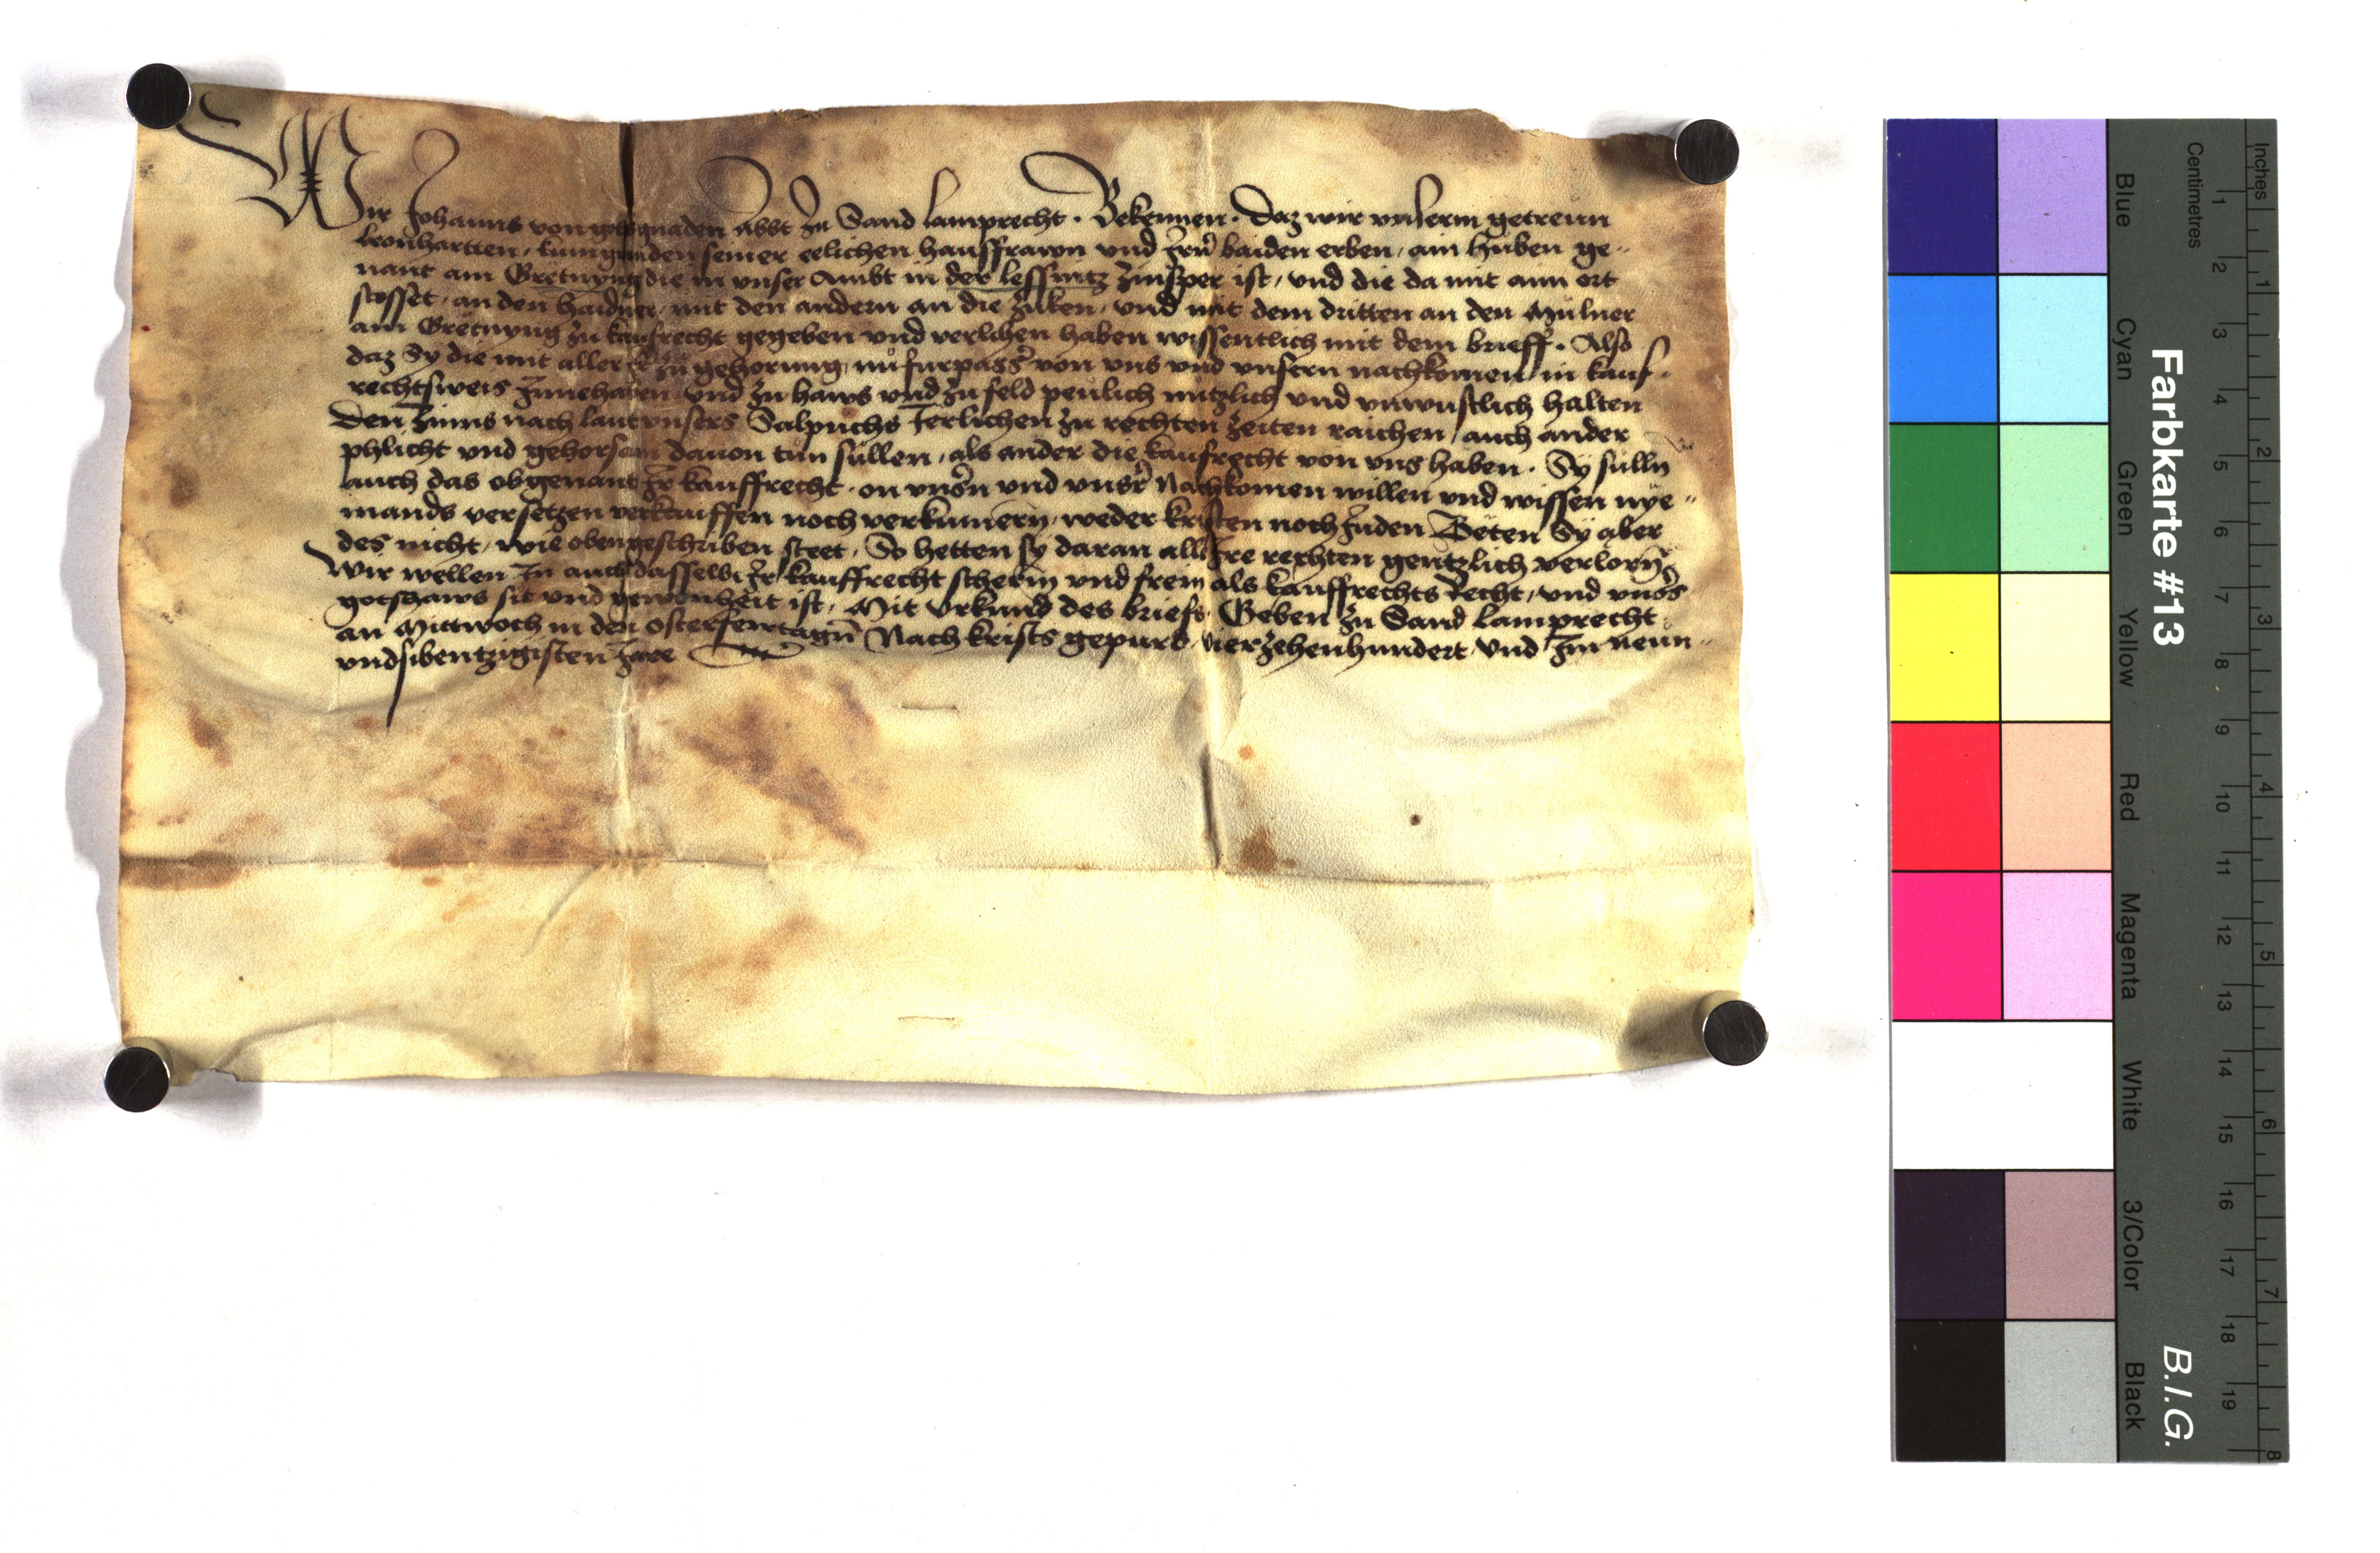 Wir Johanns von gotsgnaden Abbt zu Sand Lamprecht · Bekennen · Daz wir vnserm getrewn
leonhartten, kungunden seiner eelichen hausfrawn vnd Irn baiden erben, ain huben ge-
nant am Gretnyng die in vnser Ambt in der lessnitz zinsper ist, vnd die da mit aim ort
stosset, an den haidner, mit den andern an die und mit dem dritten an den Mulner
am Gretnyng zu kaufrecht gegeben vnd verlihen haben wissentlich mit dem brieff. Also
daz Sy die mit aller zu gehorung nu furpass von vns vnd vnsern nachkomen in kauf-
rechtsweis Innehaben vnd zu haws vnd zu feld peulich nutzlich vnd vnwustlich halten
Den zinns nach laut vnsers Salpuchs Jerlichen zu rechten zeiten raichen, auch ander
phlicht vnd gehorsam dauon tun sullen, als ander die kaufrecht von vns haben. Sy sulln
auch das obgenant Ir kauffrecht, on vnsern vnd vnser Nachkomen willen vnd wissen nye-
mands versetzen verkauffen noch verkumern, weder kristen noch Juden Teten Sy aber
des nicht, wie obengeschriben steet, So hetten sy daran all Ire rechten gentzlich verlorn
Wir wellen In auch dasselb Ir kauffrecht scherm vnd frein als kauffrechts Recht, vnd vnsers
gotshaws sit vnd gewonheit ist, Mit Vrkund des briefs Geben zu Sand Lamprecht
an Mittwoch in den osterfeirtagn Nach krists gepurd vierzehenhundert vnd Im newn-
vndsibentzigisten Jare
Farbkarte #13
B.I.G.
Centimetres
Inches
Blue
Cyan
Green
Yellow
Red
Magenta
White
3/Color
Black
1 2 3 4 5 6 7 8 9 10 11 12 13 14 15 16 17 18 19
1 2 3 4 5 6 7 8